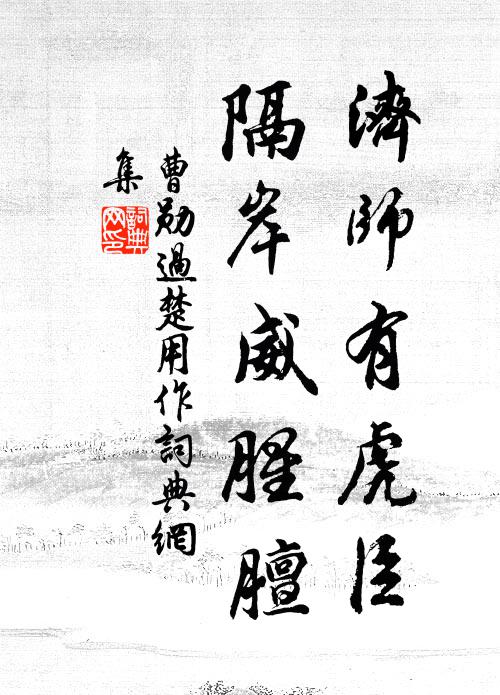 濟師有虎臣
隔岸威腥膻
曹勛過楚用作詞典網
集
詞典網印